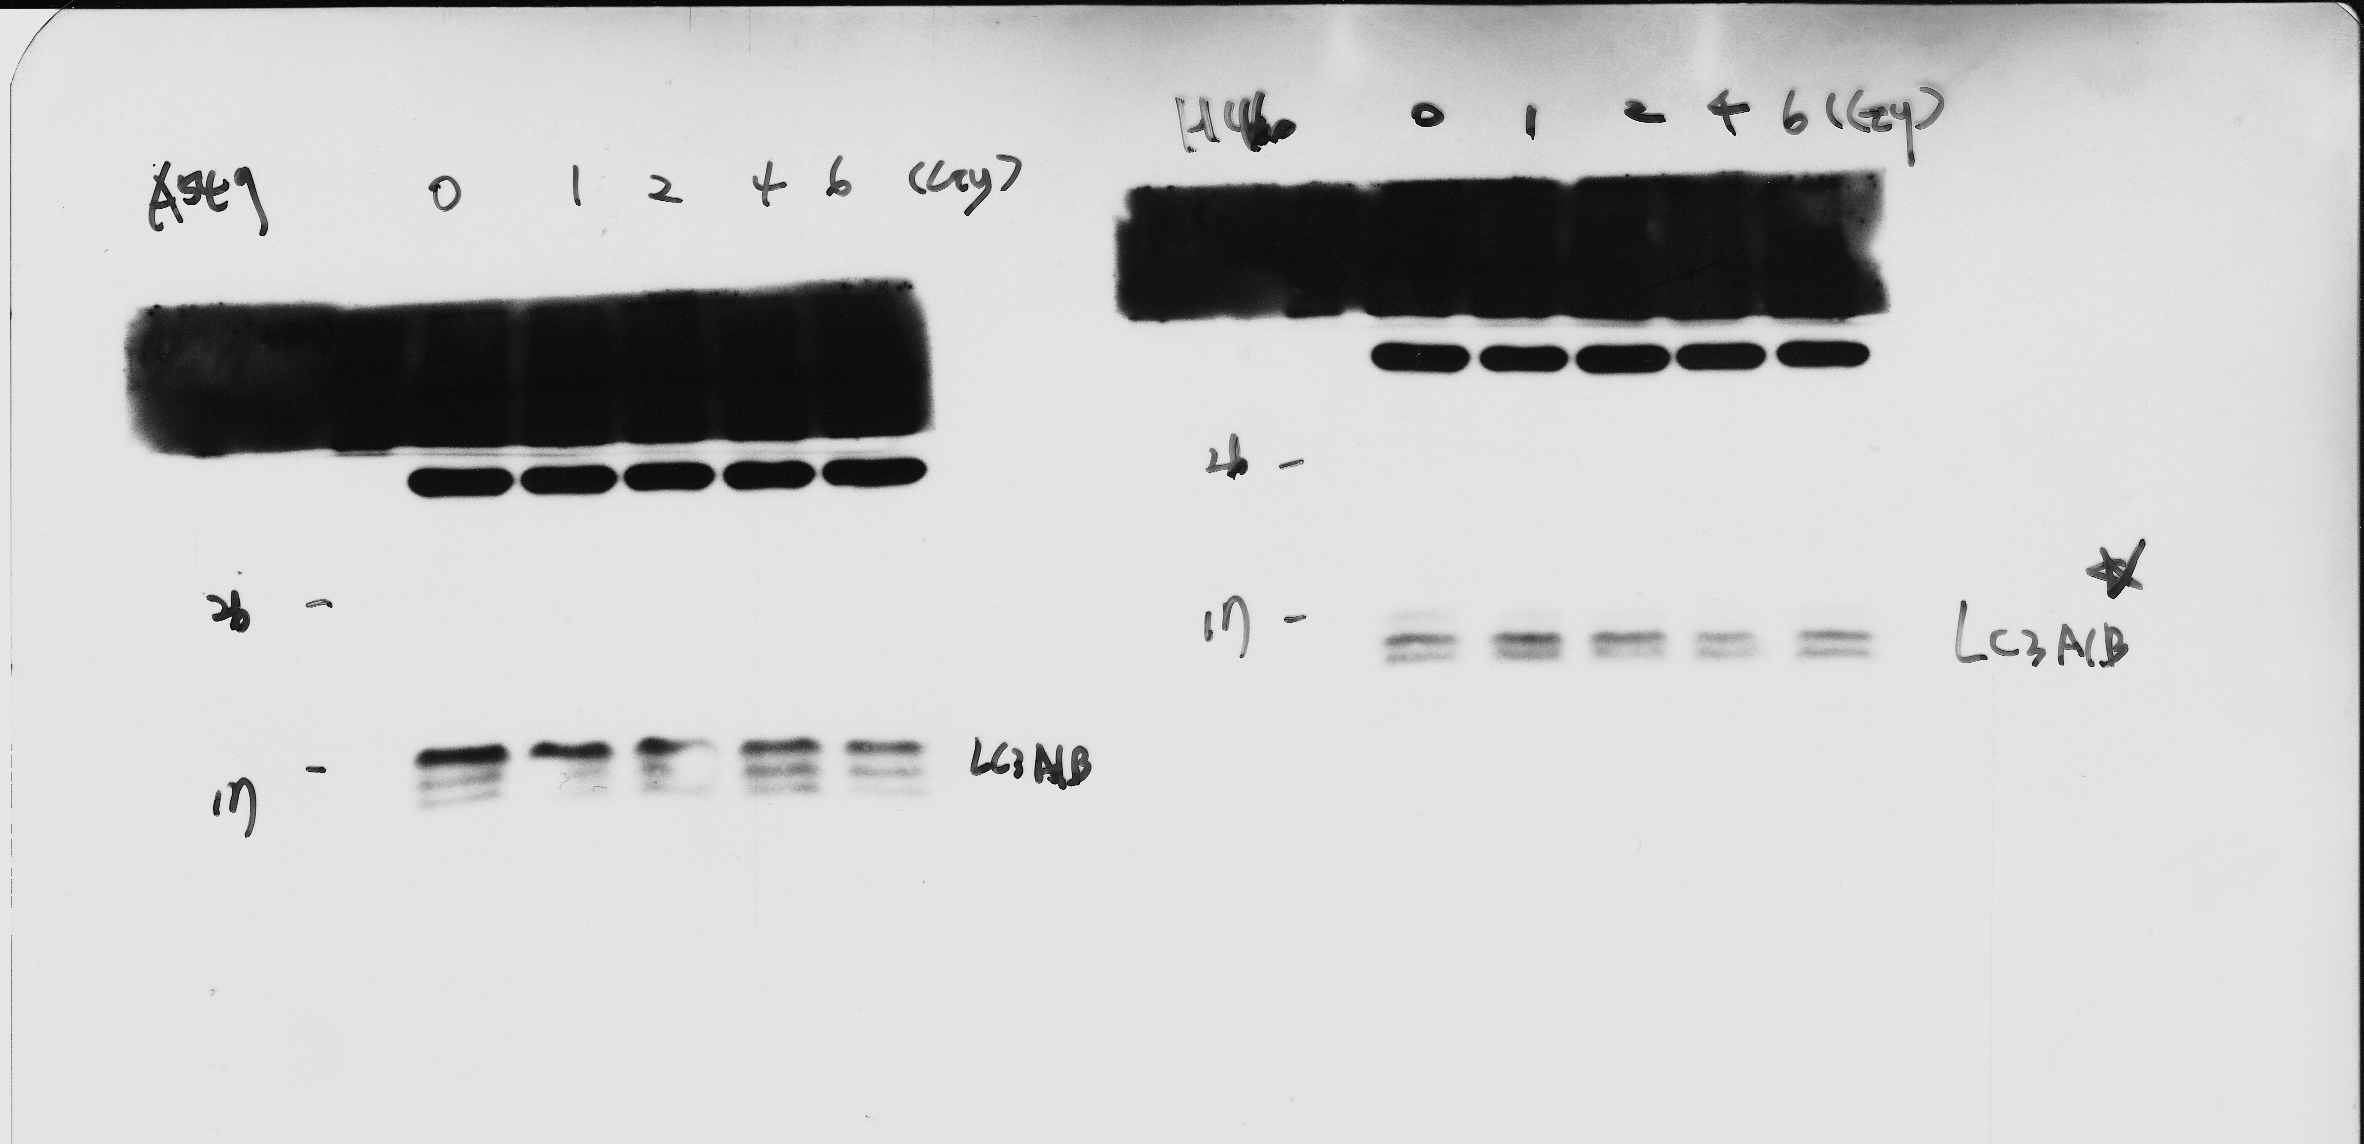 A549 0 1 2 4 6 (Gy)
26 -
17 -
LC3 A/B
H460 0 1 2 4 6 (Gy)
26 -
17 -
LC3 A/B